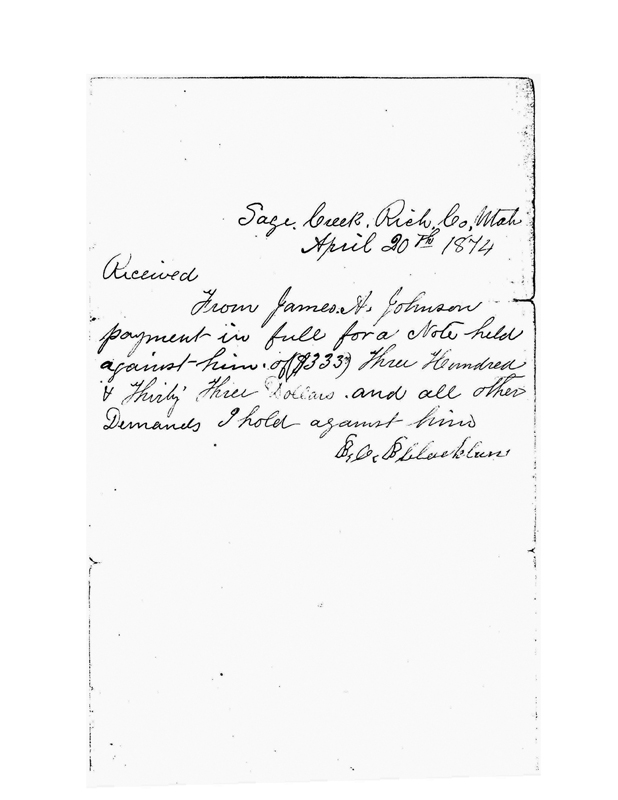 Sage Creek, Rich, Co, Utah
April 20th 1874
Received
From James A. Johnson
payment in full for a Note held
against him of ($333) Three Hundred
& Thirty Three Dollars and all other
Demands I hold against him